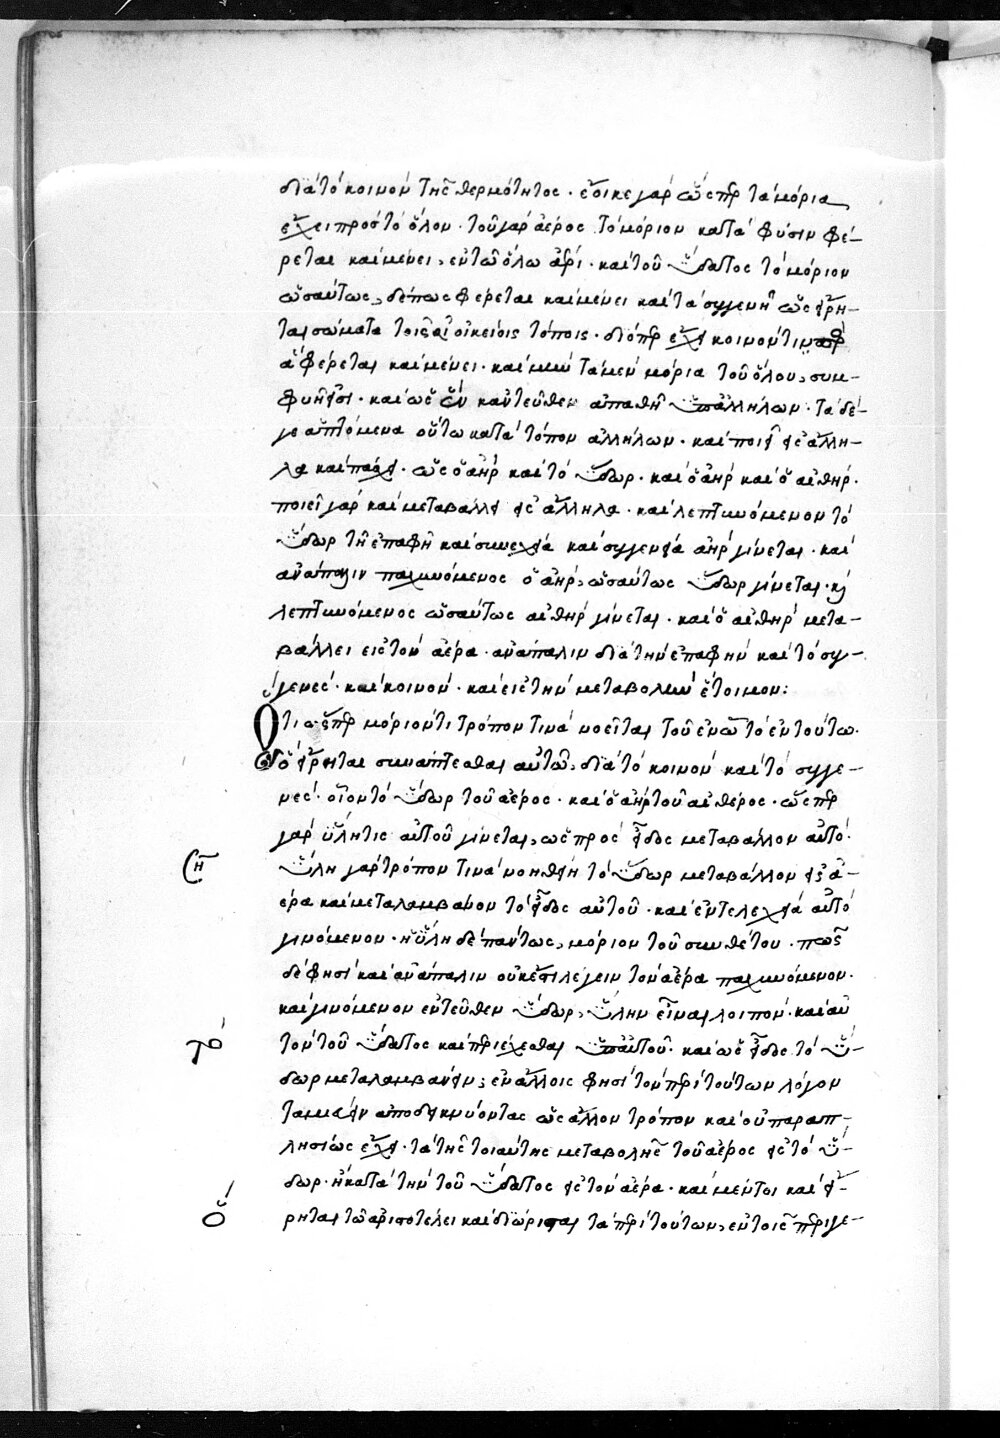 διὰ τὸ κοινὸν τῆς θερμότητος· ἔοικε γὰρ ὥσπερ τὰ μόρια
ἔχει πρὸς τὸ ὅλον· τοῦ γὰρ ἀέρος τὸ μόριον κατὰ φύσιν φέ-
ρεται καὶ μένει, ἐν τῶ ὅλω ἀέρι· καὶ τοῦ ὕδατος τὸ μόριον
ὡσαύτως, δέπως φέρεται καὶ μένει καὶ τὰ συγγενῆ ὡς εἴρη-
ται σώματα τοῖς οἰκείοις τόποις· διόπερ ἔχει κοινόν τι
ἃ φέρεται καὶ μένει· καὶ μὴν τὰ μὲν μόρια τοῦ ὅλου, συμ-
φυῆ εἰσι· καὶ ὡς ἓν κἀντεῦθεν ἀπαθῆ ὑπαλλήλων· τὰ δέ-
γε ἁπτόμενα οὕτω κατὰ τόπον ἀλλήλων· καὶ ποιεῖ εἰς ἄλλη-
λα καὶ πάσχει· ὡς ὁ ἀὴρ καὶ τὸ ὕδωρ· καὶ ὁ ἀὴρ καὶ ὁ αἰθήρ·
ποιεῖ γὰρ καὶ μεταβάλλει εἰς ἄλληλα· καὶ λεπτυνόμενον τὸ
ὕδωρ τῆ ἐπαφῆ καὶ συνεχεία καὶ συγγενεία ἀὴρ γίνεται· καὶ
ἀνάπαλιν παχυνόμενος ὁ ἀὴρ, ὡσαύτως ὕδωρ γίνεται· κ
λεπτυνόμενος ὡσαύτως αἰθὴρ γίνεται· καὶ ὁ αἰθὴρ μετα-
βάλλει εἰς τὸν ἀέρα· ἀνάπαλιν διὰ τὴν ἐπαφὴν καὶ τὸ συγ-
γενές· καὶ κοινὸν· καὶ εἰς τὴν μεταβολὴν ἕτοιμον:
Ὅτι ὥσπερ μόριόν τι τρόπον τινὰ νοεῖται τοῦ ἐν ὧ τὸ ἐν τούτω·
ὃ εἴρηται συνάπτεσθαι αὐτῶ, διὰ τὸ κοινὸν καὶ τὸ συγγε-
νές· οἷον τὸ ὕδωρ τοῦ ἀέρος· καὶ ὁ ἀὴρ τοῦ αἰθέρος· ὥσπερ
γὰρ ὕλη τις αὐτοῦ γίνεται, ὡς πρὸς εἶδος μεταβάλλον αὐτό·
ὕλη γὰρ τρόπον τινὰ νοηθείη τὸ ὕδωρ μεταβάλλον εἰς ἀ-
έρα καὶ μεταλαμβάνον τὸ εἶδος αὐτοῦ· καὶ ἐντελεχεία αὐτὸ
γινόμενον· ἡ ὕλη δὲ πάντως, μόριον τοῦ συνθέτου· πῶς
δέ φησι καὶ ἀνάπαλιν οὐκ ἔστι λέγειν τὸν ἀέρα παχυνόμενον·
καὶ γινόμενον ἐντεῦθεν ὕδωρ, ὕλην εἶναι λοιπὸν· καὶ αὐ
τὸν τοῦ ὕδατος καὶ περιέχεσθαι ὑπαὐτοῦ· καὶ ὡς εἶδος τὸ ὕ-
δωρ μεταλαμβάνειν, ἐν ἄλλοις φησὶ τὸν περὶ τούτων λόγον
ταμιεύειν ἀποδεικνύοντας ὡς ἄλλον τρόπον καὶ οὐ παραπ-
λησίως ἔχει· τὰ τῆς τοιαύτης μεταβολῆς τοῦ ἀέρος εἰς τὸ ὕ-
δωρ· ἢ κατὰ τὴν τοῦ ὕδατος εἰς τὸν ἀέρα· καὶ μέντοι καὶ εἴ-
ρηται τῶ ἀριστοτέλει καὶ διώρισται τὰ περὶ τούτων, ἐν τοῖς περὶ γε-